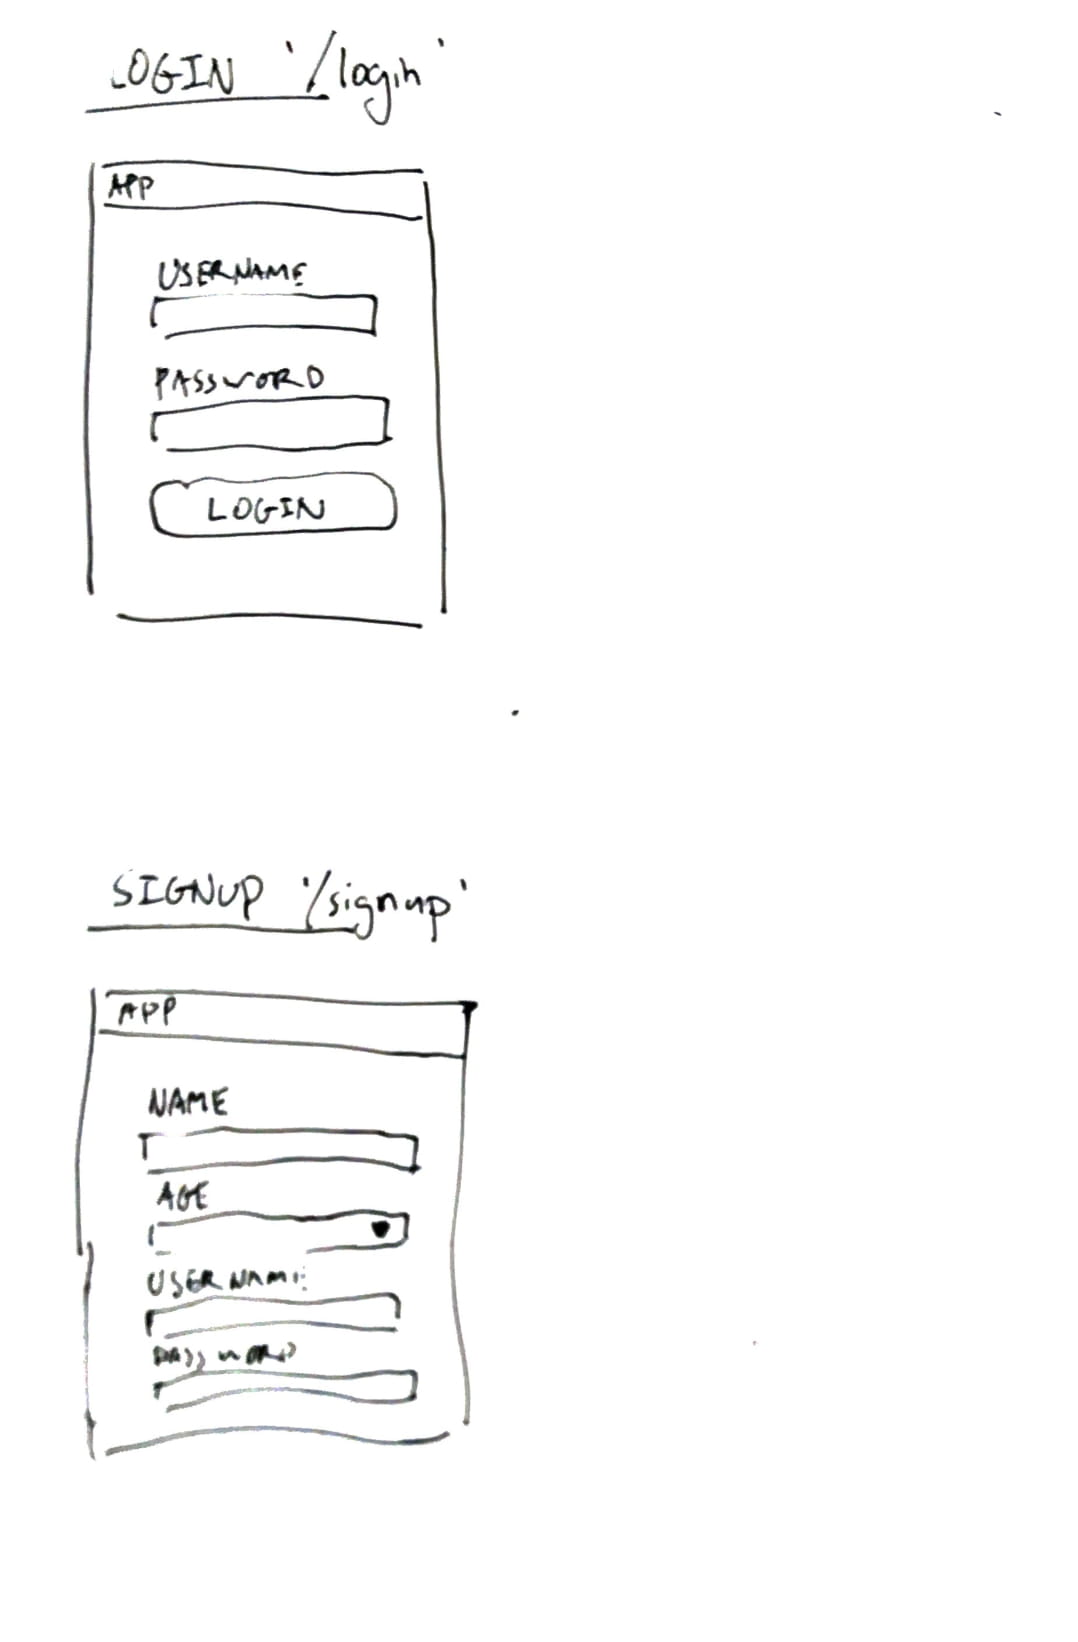 LOGIN '/login'
APP
USERNAME
PASSWORD
LOGIN
SIGNUP '/signup'
APP
NAME
AGE
USERNAME
PASSWORD